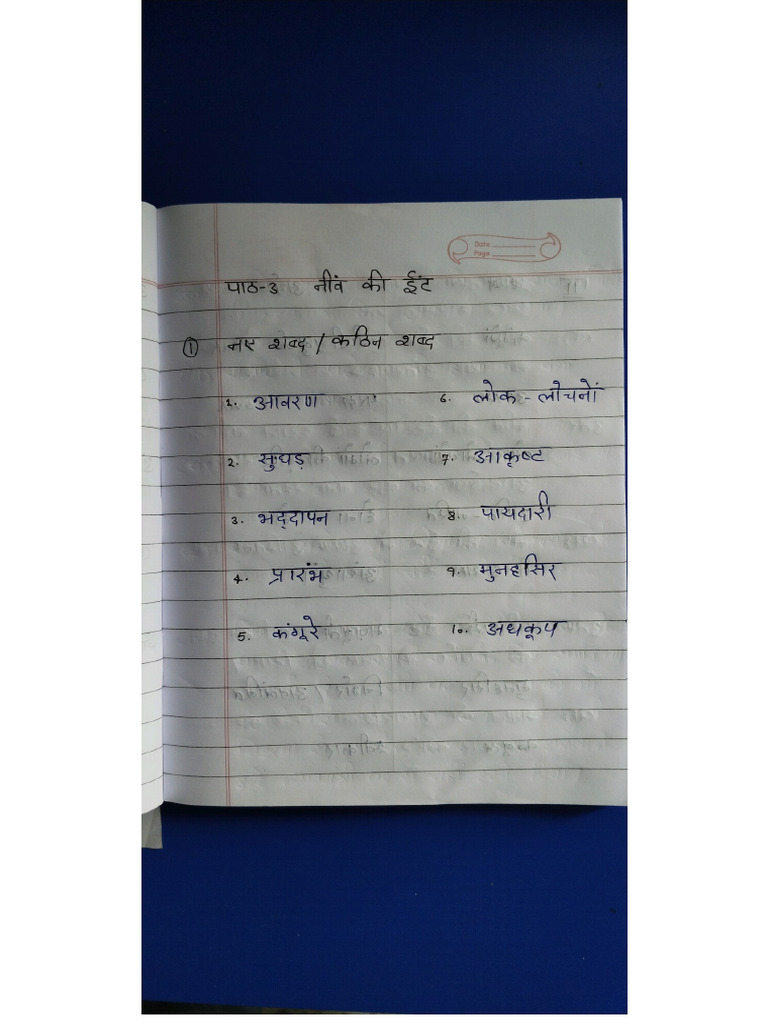 Date
Page
पाठ-3 नींव की ईंट
① नए शब्द / कठिन शब्द
1. आवरण 6. लोक - लोचनों
2. सुघड़ 7. आकृष्ट
3. भद्दापन 8. पायदारी
4. प्रारंभ 9. मुनहसिर
5. कंगूरे 10. अधकूप